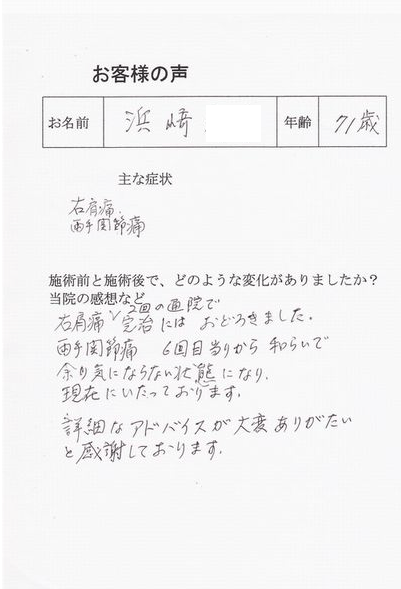 お客様の声
お名前 浜崎 年齢 71歳
主な症状
右肩痛、
両手関節痛
施術前と施術後で、どのような変化がありましたか？
当院の感想など
2回の通院で
右肩痛完治には おどろきました。
両手関節痛 6回目当りから 和らいで
余り気にならない状態になり、
現在にいたっております。
詳細なアドバイスが大変ありがたい
と感謝しております。